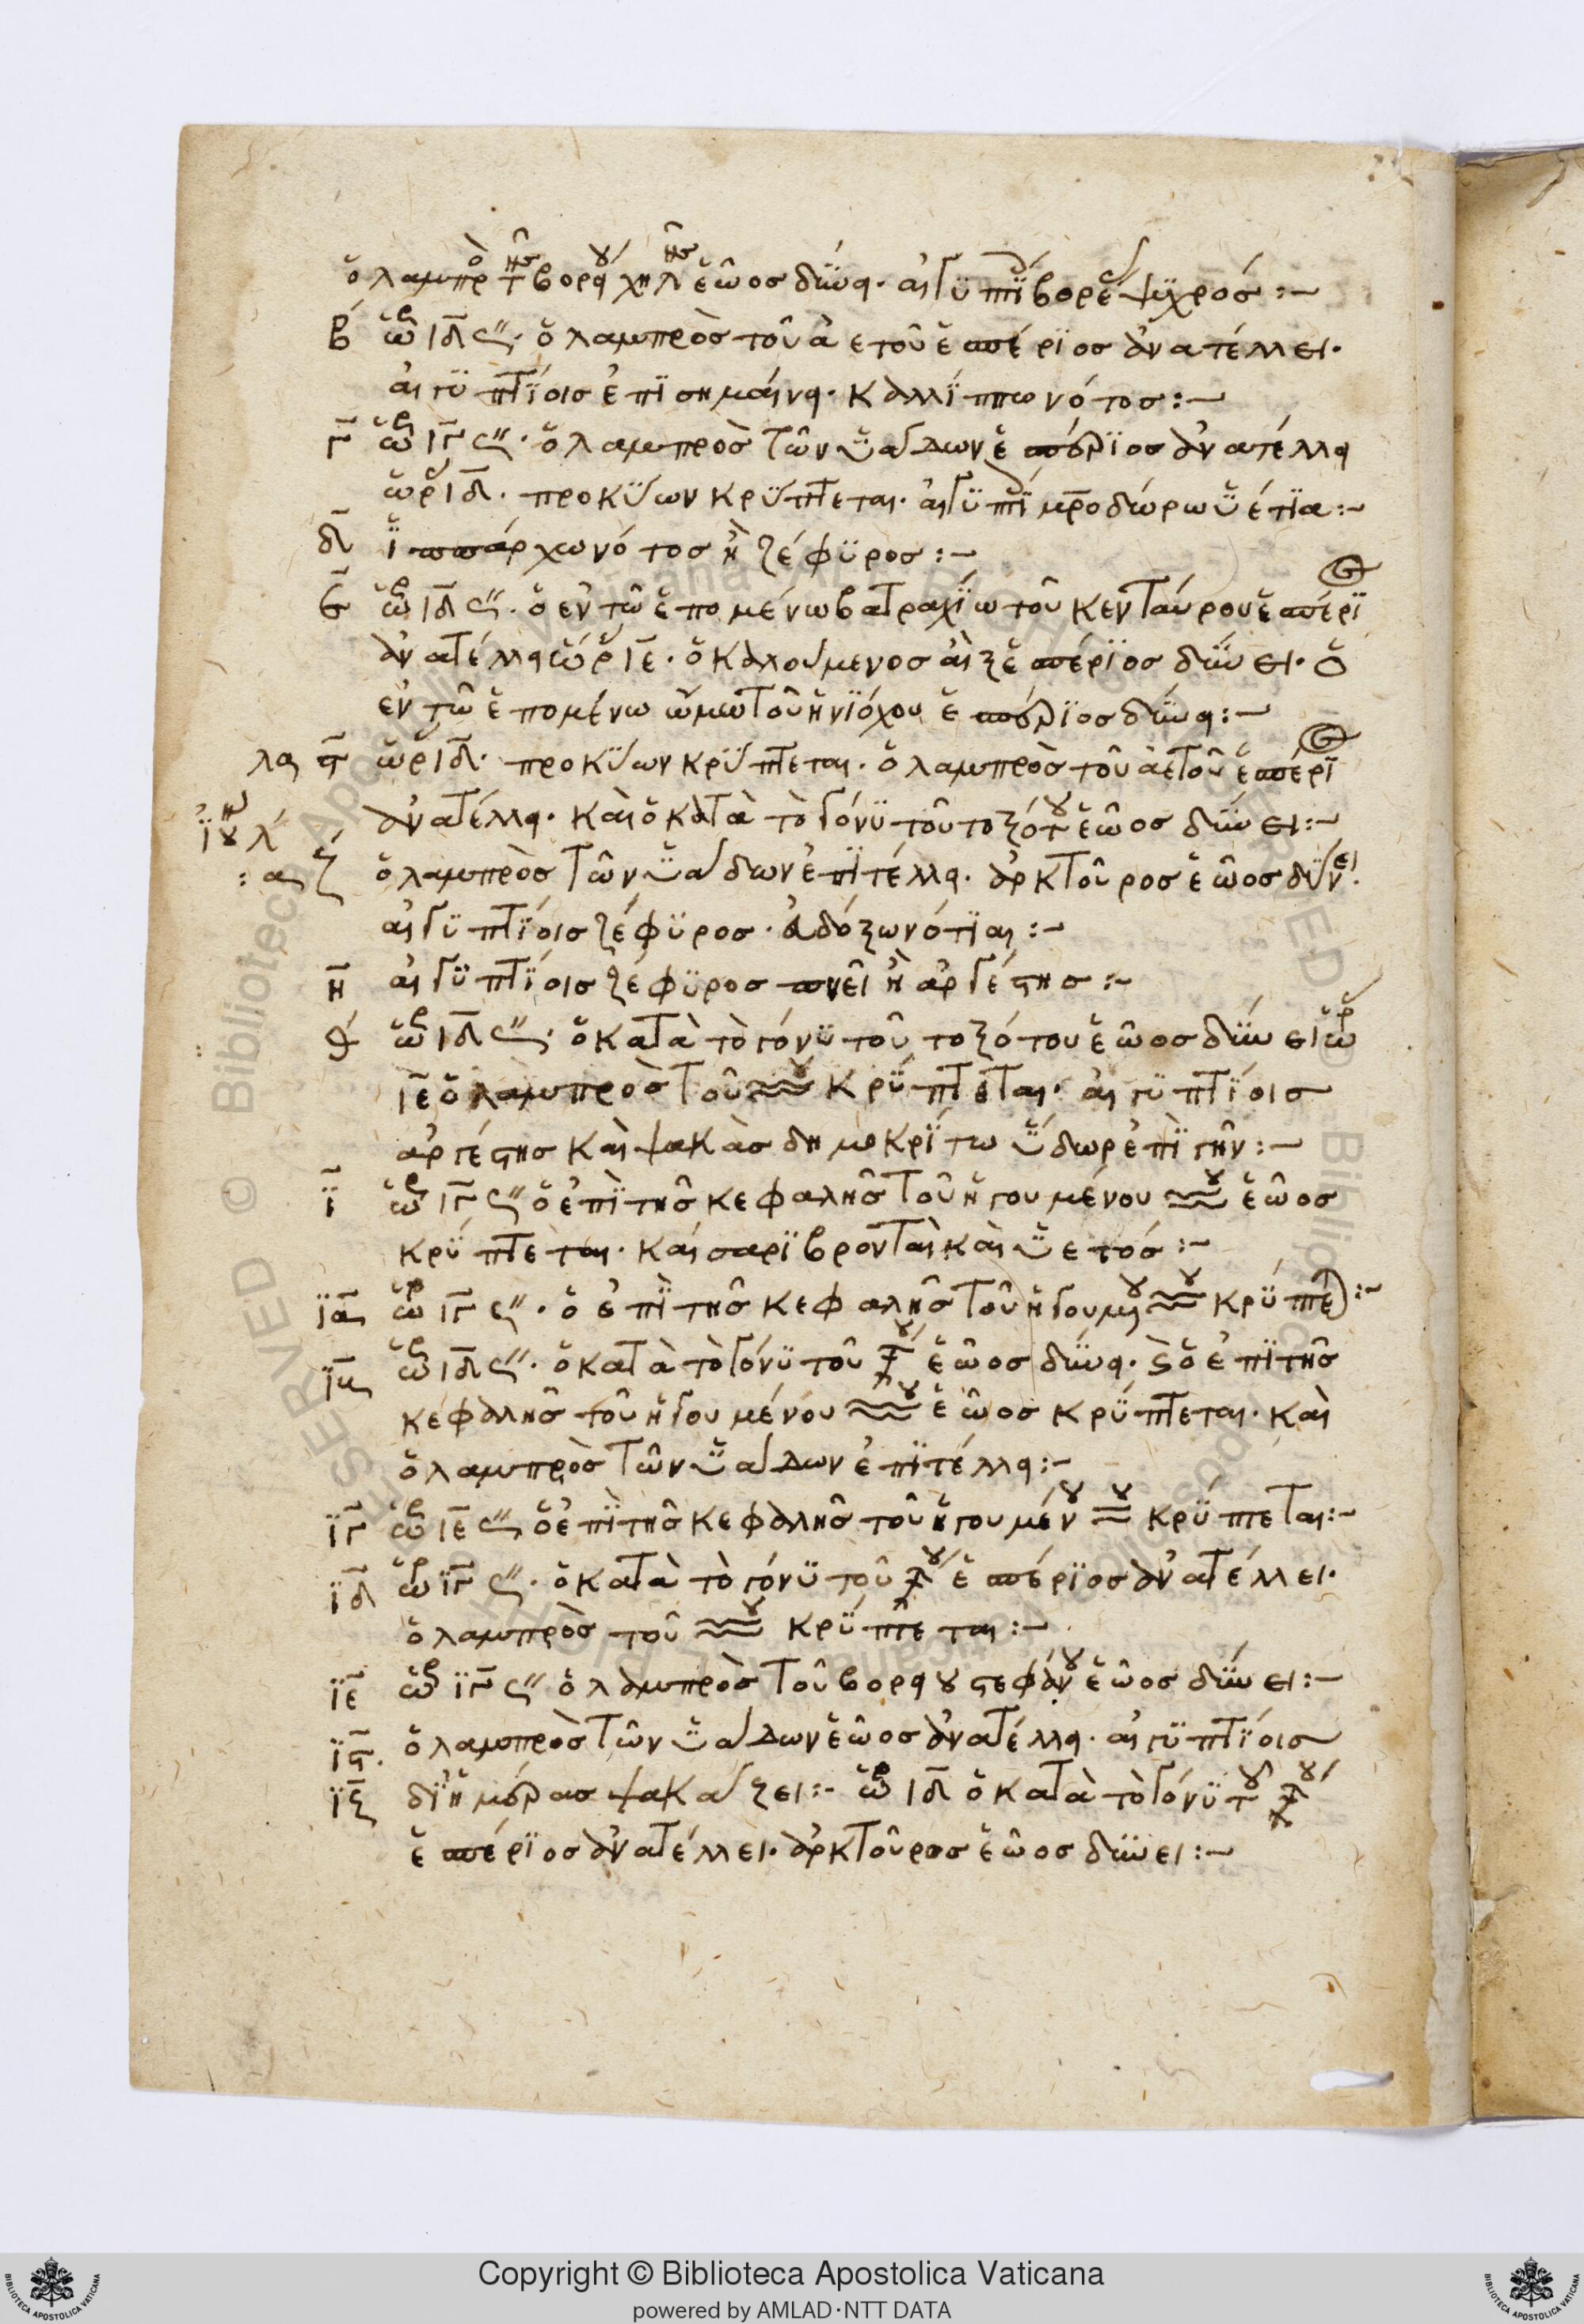 ὁ λαμπρὸ τῆσ βορείου χηλῆσ ἑῶοσ δύνει. αἰγυπτίοις βορέασ ψυχρόσ :~
β ὥρ ιδ ϛ″. ὁ λαμπρὸσ τοῦ ἀετοῦ ἑσπέριοσ ἀνατέλλει.
αἰγυπτίοισ ἐπισημαίνει. καλλίππω νότοσ :~
γ ὥρ ιγ ϛ″. ὁ λαμπρὸσ τῶν ὑάδων ἑσπέριοσ ἀνατέλλει
ὡρ ιδ. προκύων κρύπτεται. αἰγυπτίοις μητροδώρω ὑέτια :~
δ ἱππάρχω νότοσ ἢ ζέφυροσ :~
ε ὥρ ιδ ϛ″. ὁ ἐν τῶ ἑπομένω βατραχίω τοῦ κενταύρου ἑσπέριος
ἀνατέλλει ὡρ ιε. ὁ καλούμενοσ αἲξ ἑσπέριοσ δύνει. ὁ
ἐν τῶ ἑπομένω ὤμω τοῦ ἡνιόχου ἑσπέριοσ δύνει :~
λα ϛ ὡρ ιδ. προκύων κρύπτεται. ὁ λαμπρὸσ τοῦ ἀετοῦ ἑσπέριος
ἀνατέλλει. καὶ ὁ κατὰ τὸ γόνυ τοῦ τοξότου ἑῶοσ δύνει :~
ἰουλ
: α ζ ὁ λαμπρὸσ τῶν ὑάδων ἐπιτέλλει. ἀρκτοῦροσ ἑῶοσ δύνει.
αἰγυπτίοισ ζέφυροσ. εὐδόξω νότιαι :~
η αἰγυπτίοισ ζέφυροσ πνεῖ ἢ ἀργέστησ :~
θ ὥρ ιδ ϛ″. ὁ κατὰ τὸ γόνυ τοῦ τοξότου ἑῶοσ δύνει ὥρ
ιε ὁ λαμπρὸσ τοῦ ♒ου κρύπτεται. αἰγυπτίοισ
ἀργέστησ καὶ ψακὰσ δημοκρίτω ὕδωρ ἐπὶ γῆν :~
ι ὥρ ιγ ϛ″ ὁ ἐπὶ τῆσ κεφαλῆσ τοῦ ἡγουμένου ♒ου ἑῶοσ
κρύπτεται. καίσαρι βρονταὶ καὶ ὑετόσ :~
ια ὥρ ιγ ϛ″. ὁ ἐπὶ τῆσ κεφαλῆσ τοῦ ἡγουμένου ♒ου κρύπτεται :~
ιβ ὥρ ιδ ϛ″. ὁ κατὰ τὸ γόνυ τοῦ ♐ου ἑῶοσ δύνει. καὶ ὁ ἐπὶ τῆσ
κεφαλῆσ τοῦ ἡγουμένου ♒ου ἑῶοσ κρύπτεται. καὶ
ὁ λαμπρὸσ τῶν ὑάδων ἐπιτέλλει :~
ιγ ὥρ ιε ϛ″ ὁ ἐπὶ τῆσ κεφαλῆσ τοῦ ἡγουμένου ♒ου κρύπτεται :~
ιδ ὥρ ιγ ϛ″. ὁ κατὰ τὸ γόνυ τοῦ ♐ου ἑσπέριοσ ἀνατέλλει.
ὁ λαμπρὸσ τοῦ ♒ου κρύπτεται :~
ιε ὥρ ιγ ϛ″ ὁ λαμπρὸσ τοῦ βορείου στεφάνου ἑῶοσ δύνει :~
ιϛ. ὁ λαμπρὸσ τῶν ὑάδων ἑῶοσ ἀνατέλλει. αἰγυπτίοισ
ιζ δι ἡμέρασ ψακάζει :~ ὥρ ιδ ὁ κατὰ τὸ γόνυ τοῦ ♐ου
ἑσπέριοσ ἀνατέλλει. ἀρκτοῦροσ ἑῶοσ δύνει :~
Copyright © Biblioteca Apostolica Vaticana
powered by AMLAD·NTT DATA